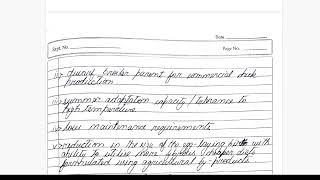 Date
Expt. No.
Page No.
ii) dwarf broiler parent for commercial chick
production
iii) summer adaptation capacity / tolerance to
high temperature
iv) low maintenance requirements
v) reduction in the size of the egg-laying with
ability to utilize more fibrous cheaper diets
formulated using agricultural by-products